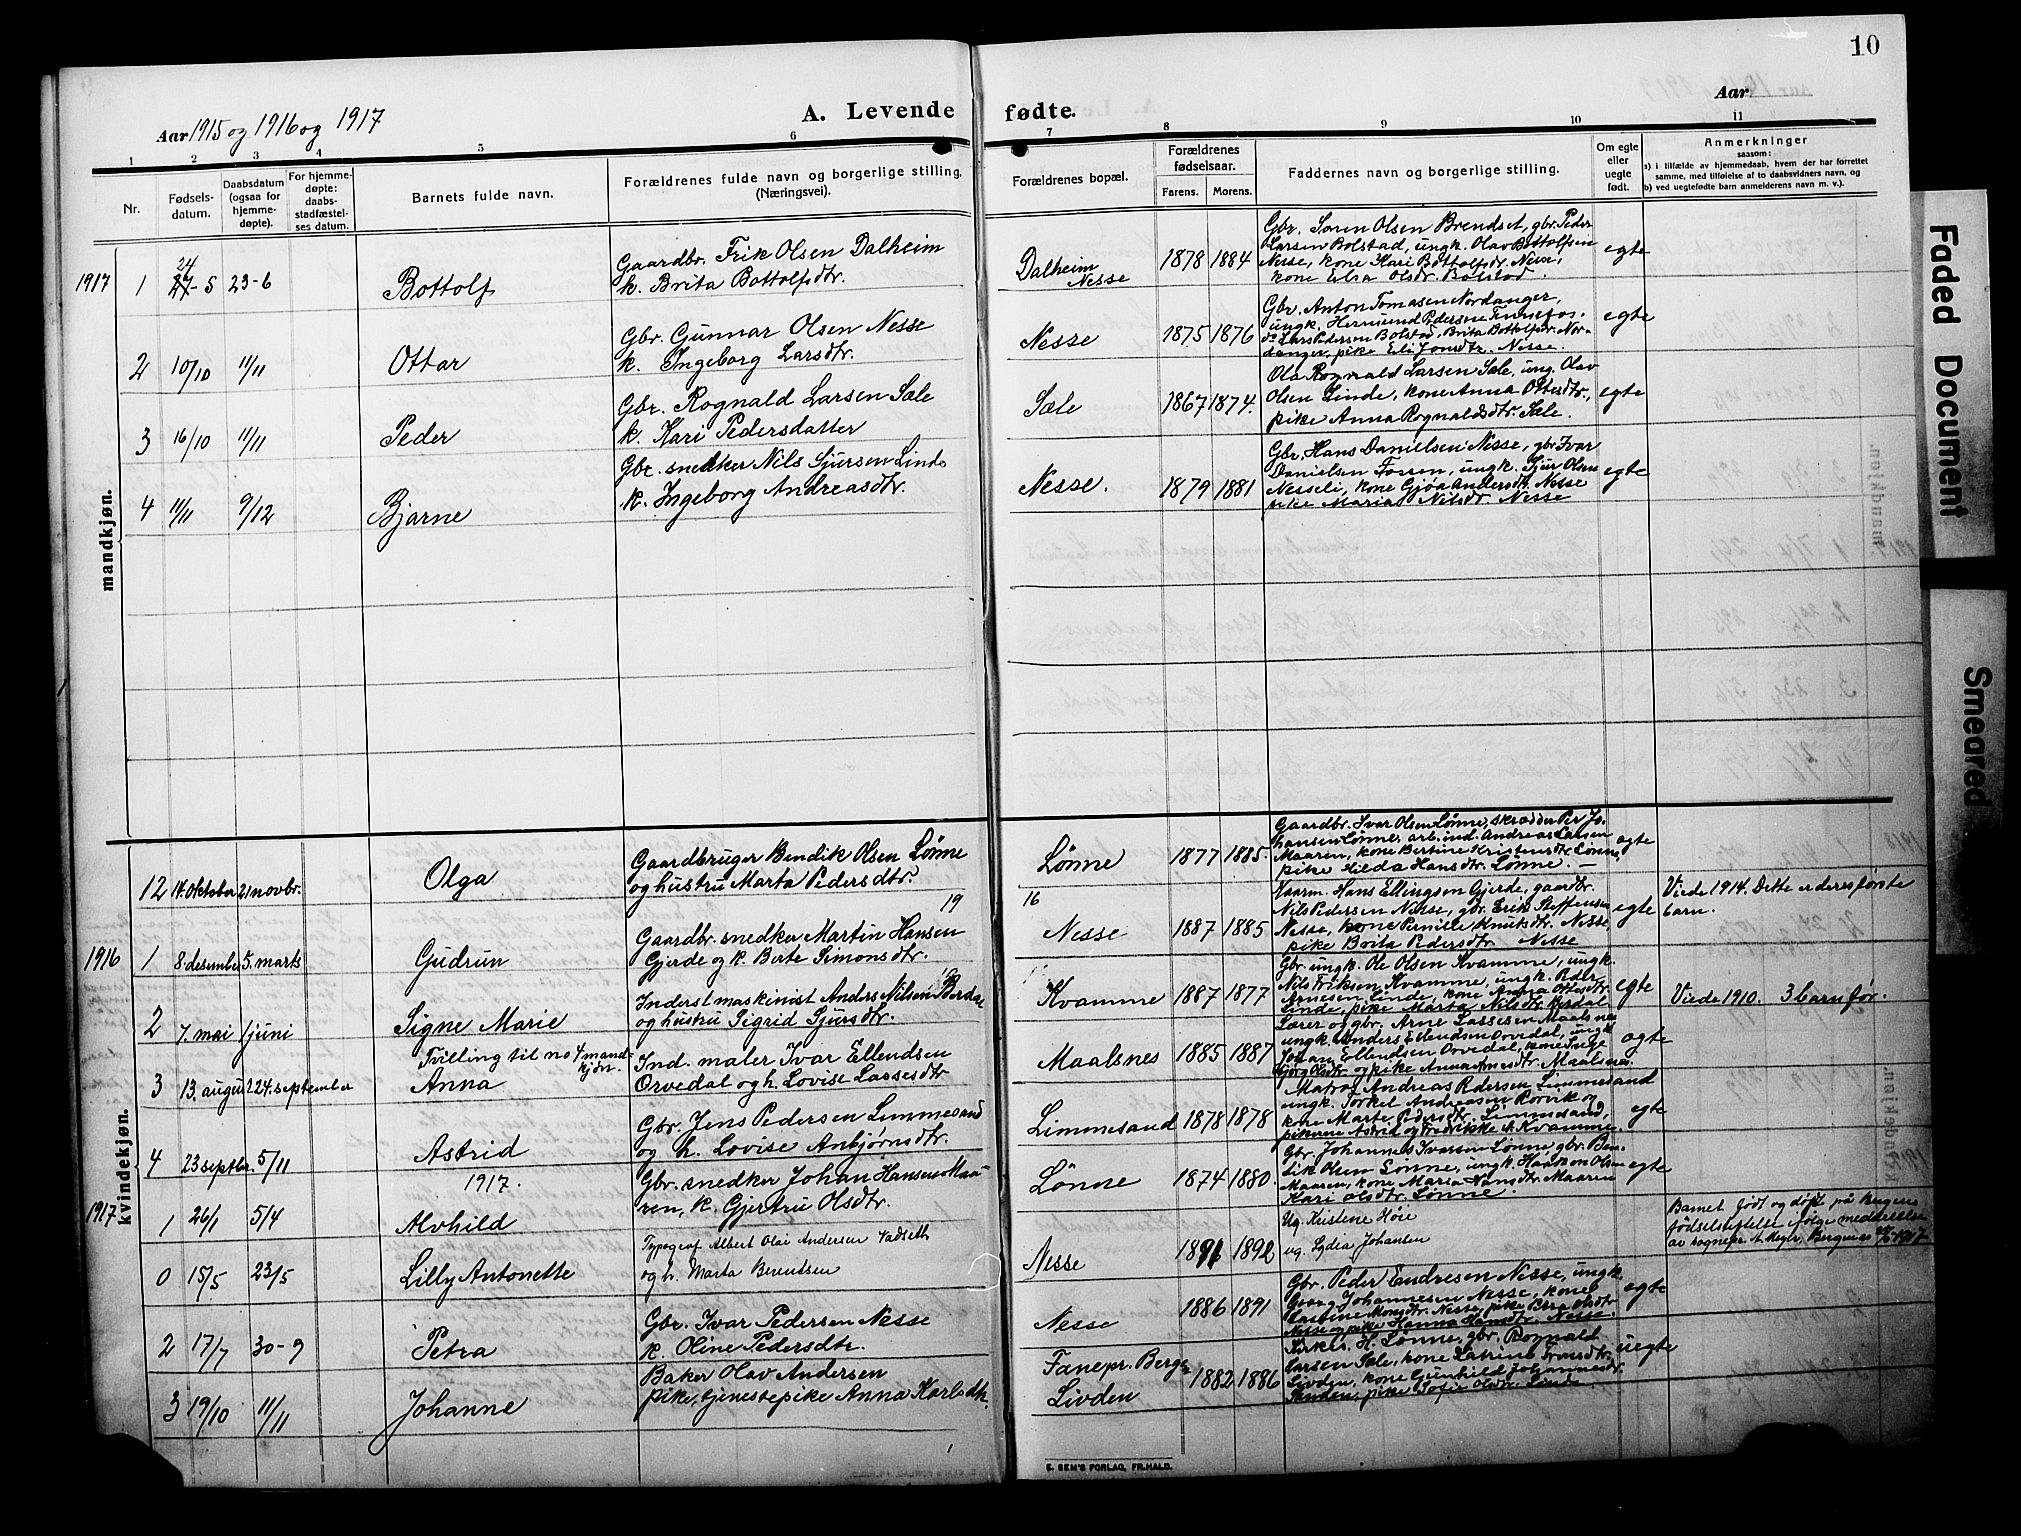 10
Aar 1915 og 1916 og 1917
A. Levende fødte.
Aar
1 2 3 4 5 6 7 8 9 10 11
Nr.
Fødsels-
datum.
Daabsdatum
(ogsaa for
hjemme-
døpte).
For hjemme-
døpte:
daabs-
stadfæstel-
ses datum.
Barnets fulde navn.
Forældrenes fulde navn og borgerlige stilling.
(Næringsvei).
Forældrenes bopæl.
Forældrenes
fødselsaar.
Farens. Morens.
Faddernes navn og borgerlige stilling.
Om egte
eller
uegte
født.
Anmerkninger
saasom:
a) i tilfælde av hjemmedaab, hvem der har forrettet
samme, med tilføielse af to daabsvidners navn, og
b) ved uegtefødte barn anmelderens navn m. v.).
mandkjøn.
1917 1 24 27-5 23-6 Bottolf
Gaardbr. Erik Olsen Dalheim
k. Brita Bottolfsdtr.
Dalheim
Nesse
1878 1884
Gbr. Søren Olsen Brendset, gbr. Peder
Larsen Bolstad, ungk. Olav Bottolfsen
Nesse, kone Kari Bottolfsdtr. Nesse,
kone Eli Olsdr. Bolstad.
egte
2 10/10 11/11 Ottar
Gbr. Gunnar Olsen Nesse
k. Ingeborg Larsdtr.
Nesse
1875 1876
Gbr. Anton Tomasen Nordanger,
ungk. Hermund Pedersen
do Lars Pedersen Bolstad, Brita Bottolfsdr. Nor-
danger, pike Eli Jonsdtr. Nesse.
egte
3 16/10 11/11 Peder
Gbr. Rognald Larsen Sæle
k. Kari Pedersdatter
Sæle
1867 1874.
Ola Rognald Larsen Sæle, ung. Olav
Olsen Linde, kone Anna Ottesdtr.,
pike Anna Rognaldsdtr. Sæle.
egte
4 11/11 9/12 Bjarne
Gbr. snedker Nils Sjursen Linde
k. Ingeborg Andreasdtr.
Nesse.
1879 1881
Gbr. Hans Danielsen Nesse, gbr. Ivar
Danielsen Fossen, ungk. Sjur Olsen
Nesseli, kone Gjøa Andersdtr. Nesse
pike Maria Nilsdtr. Nesse
egte
kvindekjøn.
12 14. oktober 21 novbr. Olga
Gaardbruger Bendik Olsen Lønne
og hustru Marta Pedersdtr.
Lønne
1877 1885.
Gaardbr. Ivar Olsen Lønne, skrædder Per Jo-
hansen Lønne, arb. ind. Andreas Larsen
Maaren, kone Bertine Kristensdtr. Lønne,
pike Hilda Hansdtr. Lønne. —
egte
19 16
1916 1 8. desember 5. marts Gudrun
Gaardbr. snedker Martin Hansen
Gjerde og k. Berte Simonsdtr.
Nesse
1887 1885
Kaarm. Hans Ellingsen Gjerde, gaardbr.
Nils Pedersen Nesse, gbr. Erik Steffensen
Nesse, kone Pernille Knutsdtr. Nesse,
pike Brita Pedersdtr. Nesse
egte
Viede 1914. Dette er deres første
barn.
2 7. mai 1 juni Signe Marie
Inderst maskinist Anders Nilsen Berdal
og hustru Sigrid Sjursdtr.
Kvamme
1887 1877
Gbr. ungk. Ole Olsen Kvamme, ungk.
Nils Eriksen Kvamme, ungk. Peder
Arnesen Linde, kone Anna Ottesdtr.
Linde, pike Marta Nilsdtr. Berdal
egte
Viede 1910. 3 barn før.
3 13. august 24. september
Tvilling til no 4 mand-
kjøn.
Anna
Ind. maler Ivar Ellendsen
Orvedal og h. Lovise Lassesdtr
Maalsnes
1885 1887
Lærer og gbr. Arne Lassesen Maalsnes
ungk. Anders Ellendsen Orvedal, ungk.
Johan Ellendsen Orvedal, kone Inge-
bjørg Olsdtr. og pike Anna Arnesdtr. Maalsnes.
egte
4 23 septbr. 5/11 Astrid
Gbr. Jens Pedersen Limmesand
og h. Lovise Anbjørnsdtr.
Limmesand
1878 1878
Matros Andreas Pedersen Limmesand
ungk. Torkel Andreasen Rørvik og
kone Marte Pedersdtr. Limmesand,
pikerne Astrid og Fredrikke A. Kvamme.
egte
1917.
1917 1 26/1 5/4 Alvhild
Gbr. snedker Johan Hansen Maa-
ren, k. Gjertru Olsdtr.
Lønne
1874 1880.
Gbr. Johannes Ivarsen Lønne, gbr. Ben-
dik Olsen Lønne, ungk. Haakon Olsen
Maaren, kone Maria Hansdtr. Maaren
Kari Olsdtr. Lønne.
egte
0 15/5 23/5 Lilly Antonette
Typograf Albert Olai Andersen Vadseth
og h. Marta Berentsen
Nesse
1891 1892
Ug. Kristene Høie
ug. Lydia Johansen
Barnet født og døpt på Bergens
fødselsstiftelse ifølge meddelelse
av sognepr. A. Bergen 1917.
2 17/7 30-9 Petra
Gbr. Ivar Pedersen Nesse
k. Oline Pedersdtr.
Nesse
1886 1891
Gbr. Peder Endresen Nesse, ungk.
Georg Johannesen Nesse, kone
Lastine Monsdtr. Nesse, pike Olsdtr
Nesse og pike Hanna Hansdtr. Nesse.
egte
3 19/10 11/11 Johanne
Baker Olav Andersen
Pike, tjenestepike Anna Karlsdtr.
Fanepr. Bergen
Livden
1882 1886
Kirkes. H. Lønne, gbr. Rognald
Larsen Sæle, kone Katrine
Livden, kone Gunhild Johannesdr.
pike Sofie Olsdr. Linde.
uegte
E. SEM'S FORLAG, FR.HALD.
Faded Document
Smeared